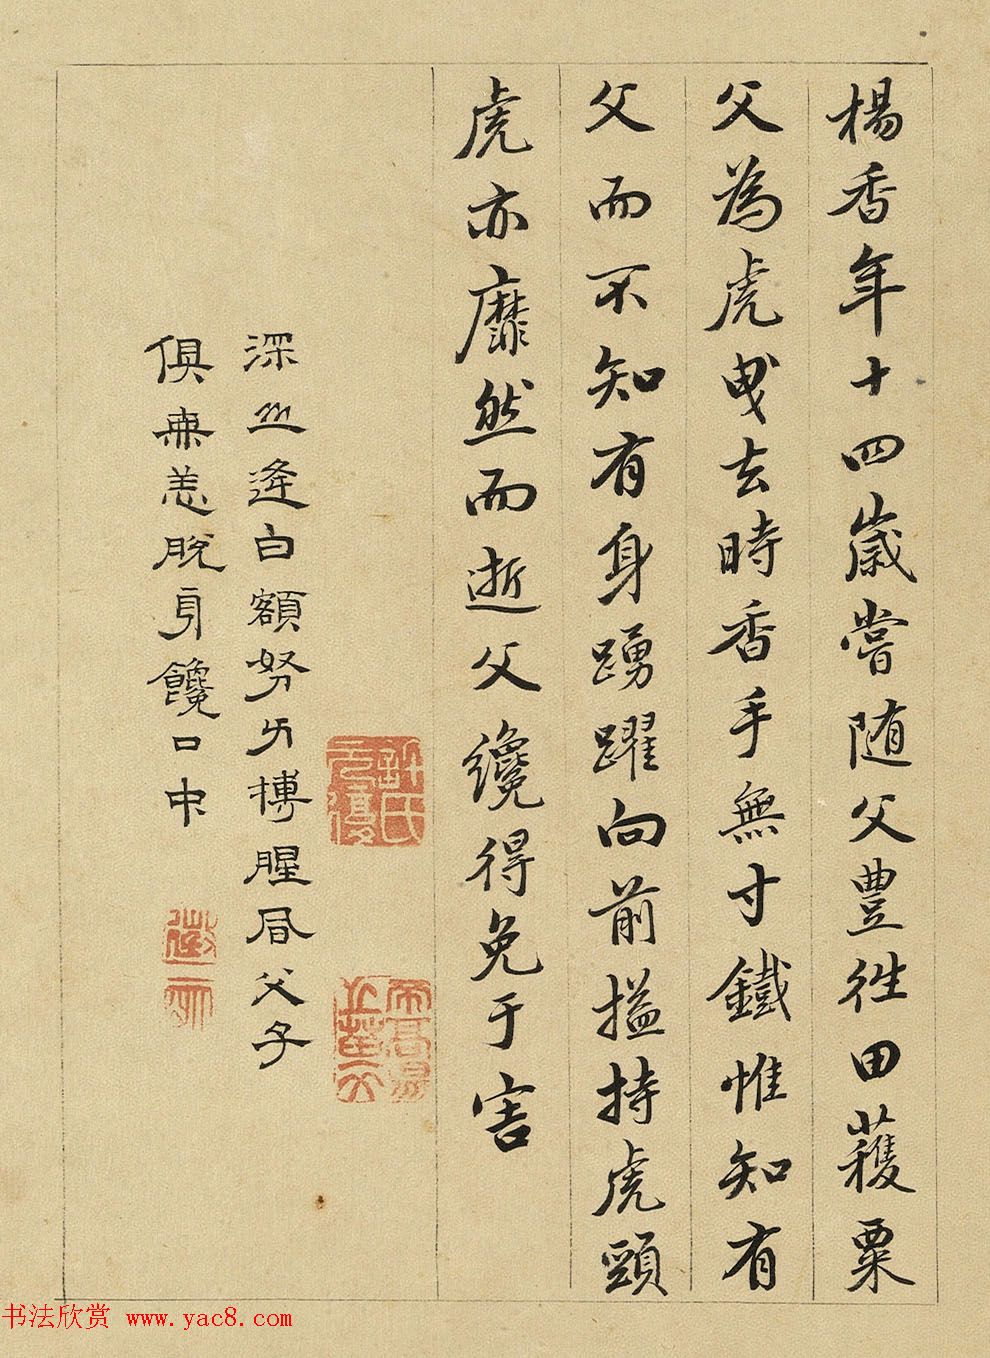 楊香年十四歲嘗随父豊徃田穫粟
父為虎曳去時香手無寸鐵惟知有
父而不知有身踴躍向前搤持虎頸
虎亦靡然而逝父纔得免于害
許氏元復
深山逢白額努力搏腥風父子
俱無恙脫身饞口中
书法欣赏 www.yac8.com